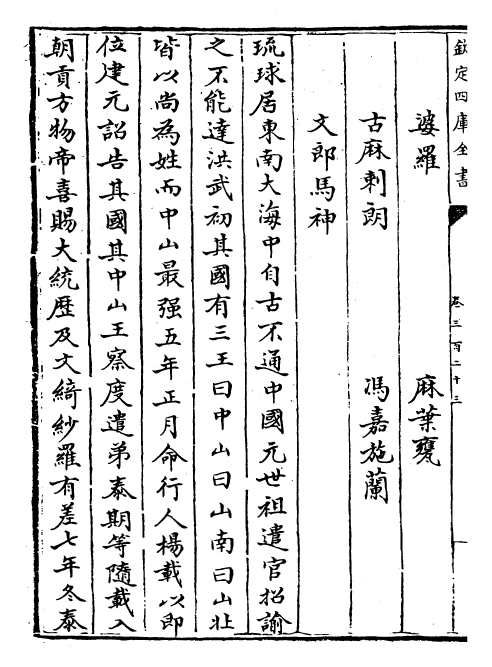 欽定四庫全書
卷三百二十三
一
婆羅　麻葉甕
古麻剌朗　馮嘉施蘭
文郎馬神
琉球居東南大海中自古不通中國元世祖遣官招諭
之不能達洪武初其國有三王曰中山曰山南曰山北
皆以尚為姓而中山最强五年正月命行人楊載以即
位建元詔告其國其中山王察度遣弟泰期等隨載入
朝貢方物帝喜賜大統歷及文綺紗羅有差七年冬泰